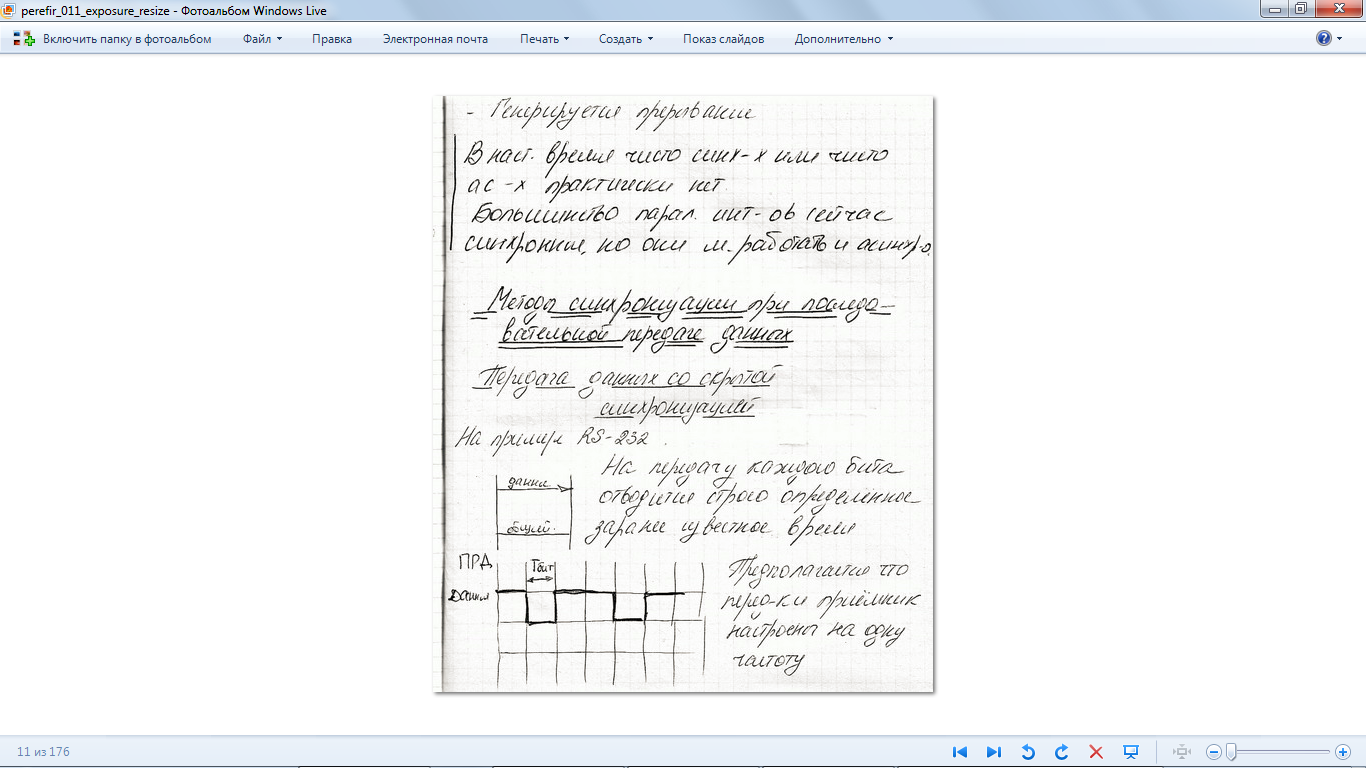 perefir_011_exposure_resize - Фотоальбом Windows Live
Включить папку в фотоальбом Файл Правка Электронная почта Печать Создать Показ слайдов Дополнительно
- Генерируется прерывание
В наст. время чисто синх-х или чисто
ас-х практически нет.
Большинство парал. инт-ов сейчас
синхронные, но они м. работать и асинхр-о.
Методы синхронизации при последо-
вательной передаче данных
Передача данных со скрытой
синхронизацией
На примере RS-232.
На передачу каждого бита
отводится строго определенное
заранее известное время
данные
общий.
ПРД
Tбит
Данные
Предполагается что
перед-к и приёмник
настроены на одну
частоту
11 из 176